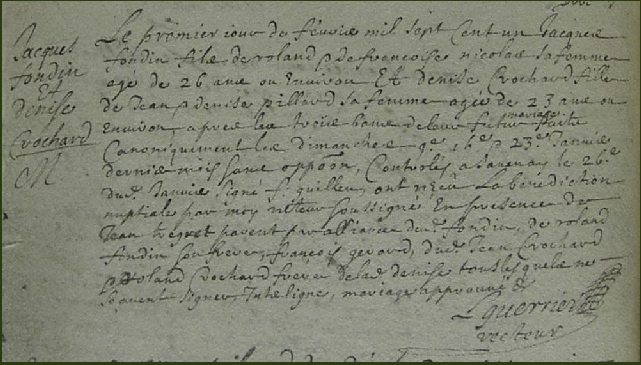 Jacques
fondin
Et
denise
Crochard
M
Le premier iour de feuvrie mil sept Cent un Jacques
fondin fils de roland & de francoise nicolas sa femme
agé de 26 ans ou Environ Et denise Crochard fille
de Jean & denise pillard sa femme agée de 23 ans ou
Environ apres les trois bans de leur futur mariage faite
Canoniquement les dimanches 9e 16e & 23e Januie
dernie mois sans oppôon, Controlés a Sauenay le 26e
dud. Januie signé f. quilleu, ont reçeu La bénédiction
nuptiale par moy recteur soussigné En presence de
Jean tregret parent par alliance dud. fondin, de roland
fondin son frere, francois gerard, dud. Jean Crochard
& Roland Crochard freres de lad. denise tous lesquels ne
scauent signer Interligne, mariage approuué
L guerrier
recteur